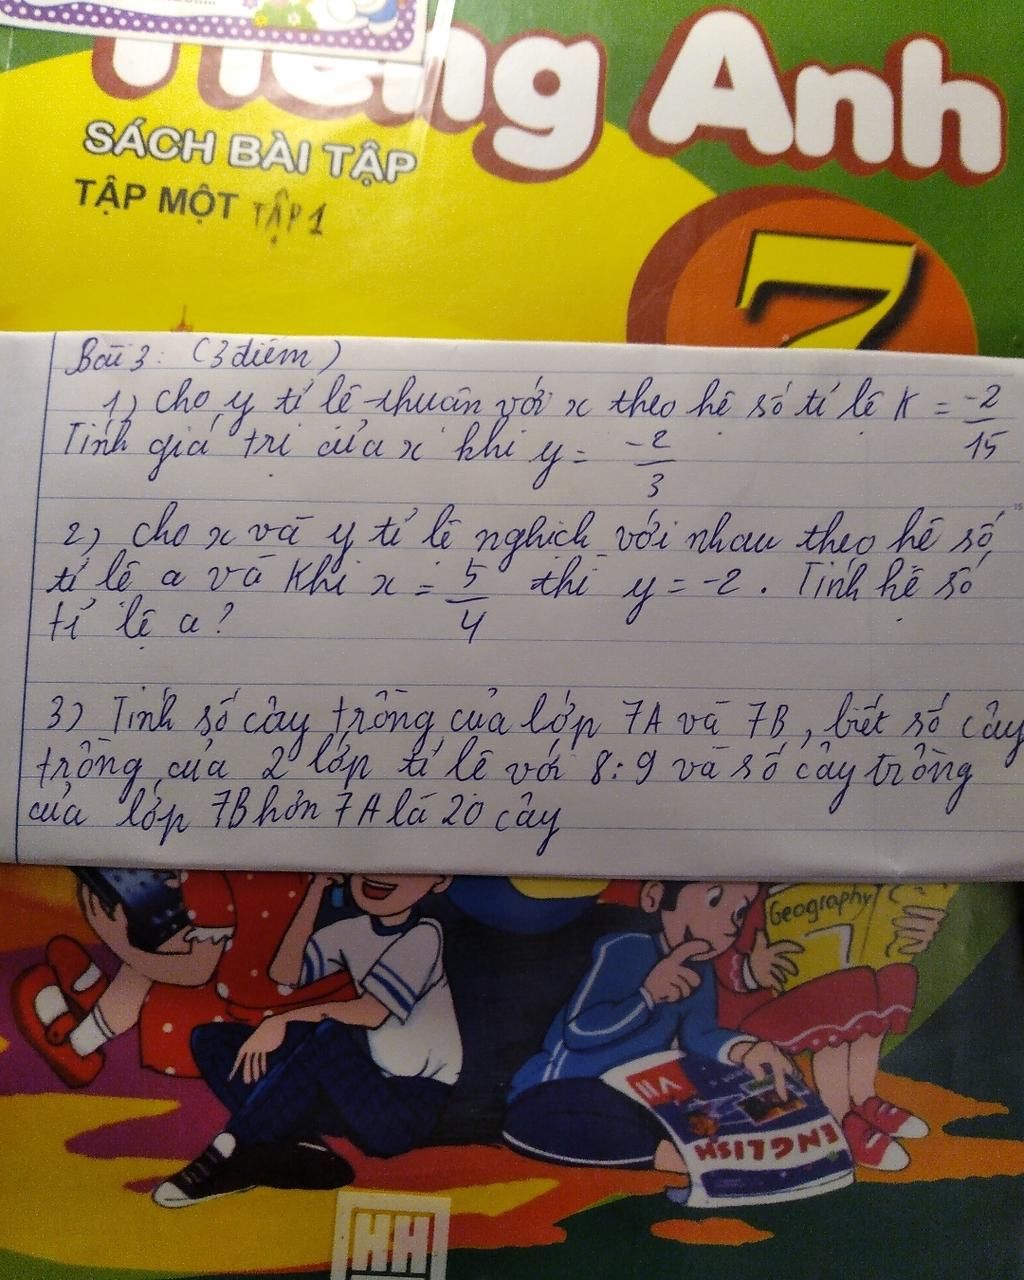 Tiếng Anh
SÁCH BÀI TẬP
TẬP MỘT TẬP 1
7
Bài 3: (3 điểm)
1) Cho y tỉ lệ thuận với x theo hệ số tỉ lệ K = -2/15
Tính giá trị của x khi y = -2/3
2) Cho x và y tỉ lệ nghịch với nhau theo hệ số
tỉ lệ a và khi x = 5/4 thì y = -2. Tính hệ số
tỉ lệ a?
3) Tính số cây trồng của lớp 7A và 7B, biết số cây
trồng của 2 lớp tỉ lệ với 8:9 và số cây trồng
của lớp 7B hơn 7A là 20 cây
Geography
VII
ENGLISH
HH